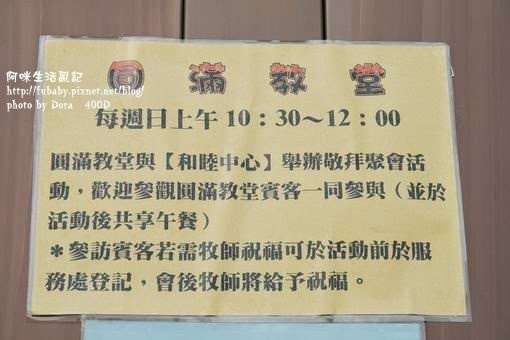 阿咪生活亂記
http://fubaby.pixnet.net/blog/
photo by Dora 400D
圓滿教堂
每週日上午10：30～12：00
圓滿教堂與【和睦中心】舉辦敬拜聚會活
動，歡迎參觀圓滿教堂賓客一同參與（並於
活動後共享午餐）
＊參訪賓客若需牧師祝福可於活動前於服
務處登記，會後牧師將給予祝福。